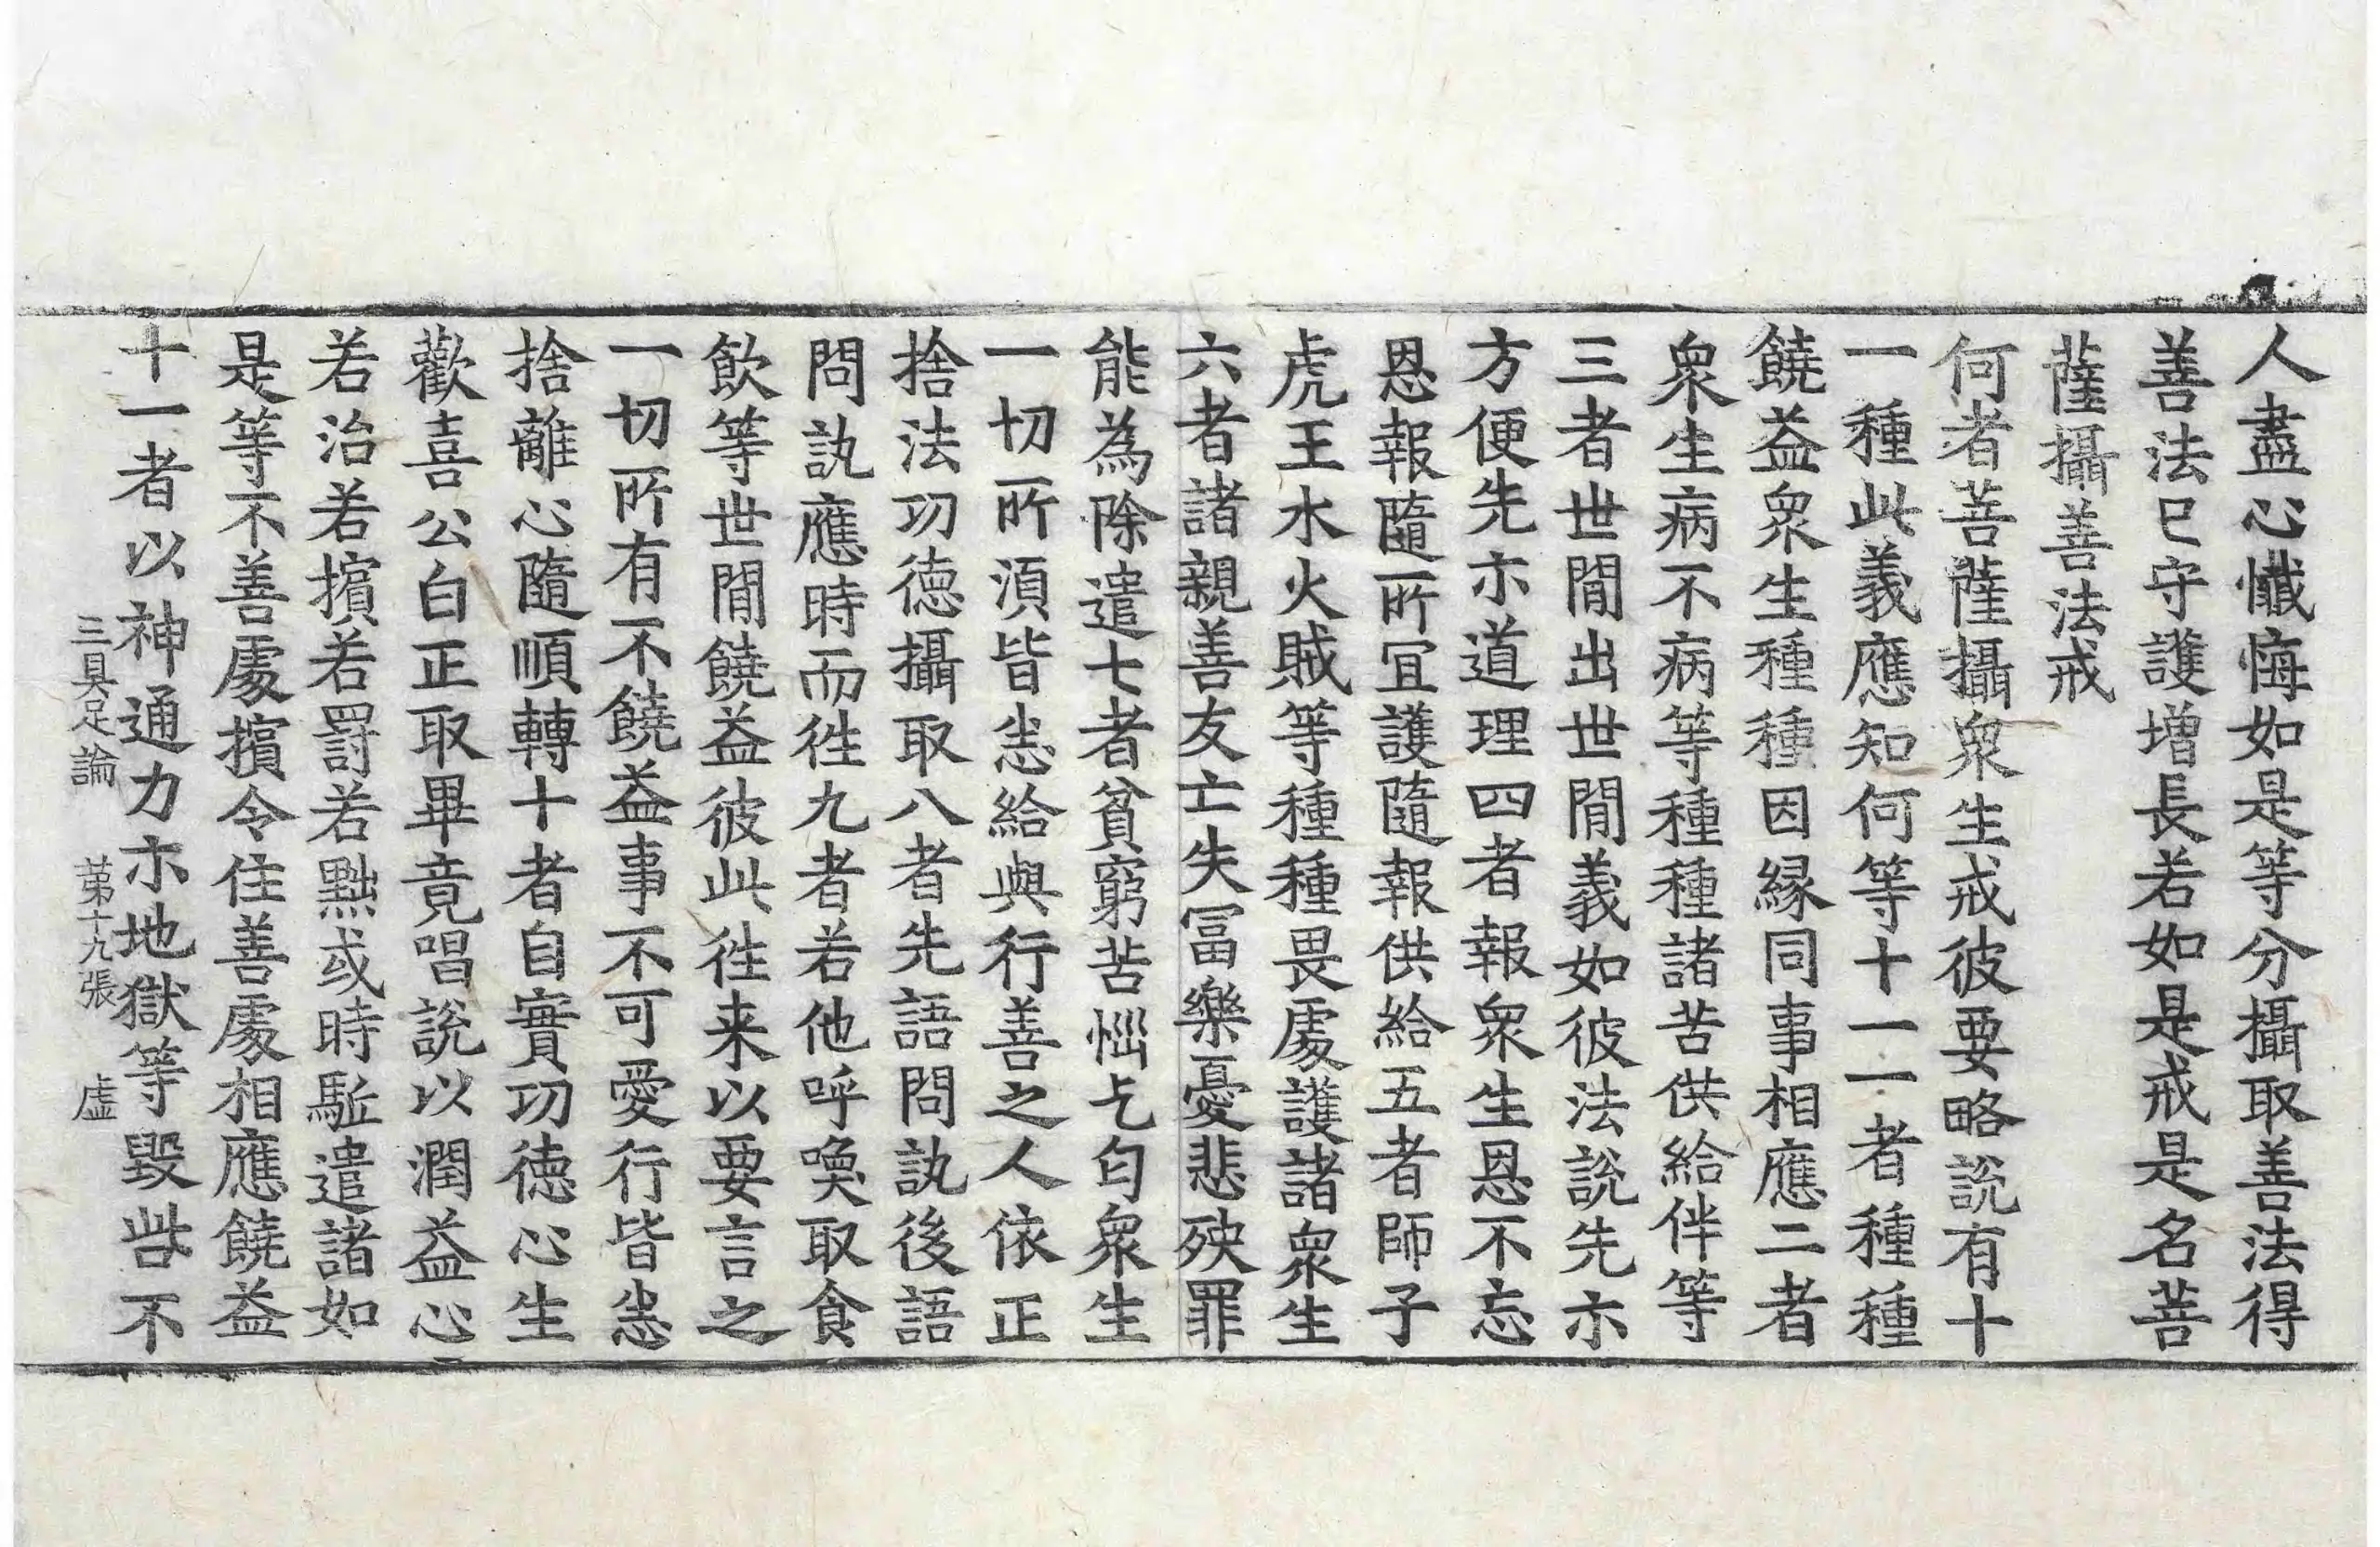 人盡心懺悔如是等分攝取善法得
善法已守護增長若如是戒是名菩
薩攝善法戒
何者菩薩攝衆生戒彼要略説有十
一種此義應知何等十一一者種種
饒益衆生種種因縁同事相應二者
衆生病不病等種種諸苦供給伴等
三者世間出世間義如彼法説先示
方便先示道理四者報衆生恩不忘
恩報隨所冝護隨報供給五者師子
虎王水火賊等種種畏處護諸衆生
六者諸親善友亡失冨樂憂悲殃罪
能為除遣七者貧窮苦惱乞匄衆生
一切所須皆悉給與行善之人依正
捨法功德攝取八者先語問訊後語
問訊應時而往九者若他呼喚取食
飲等世間饒益彼此往来以要言之
一切所有不饒益事不可愛行皆悉
捨離心隨順轉十者自實功德心生
歡喜公白正取畢竟唱説以潤益心
若治若擯若罰若黜或時駈遣諸如
是等不善處擯令住善處相應饒益
十一者以神通力示地獄等毀呰不
三具足論　第十九張　虛